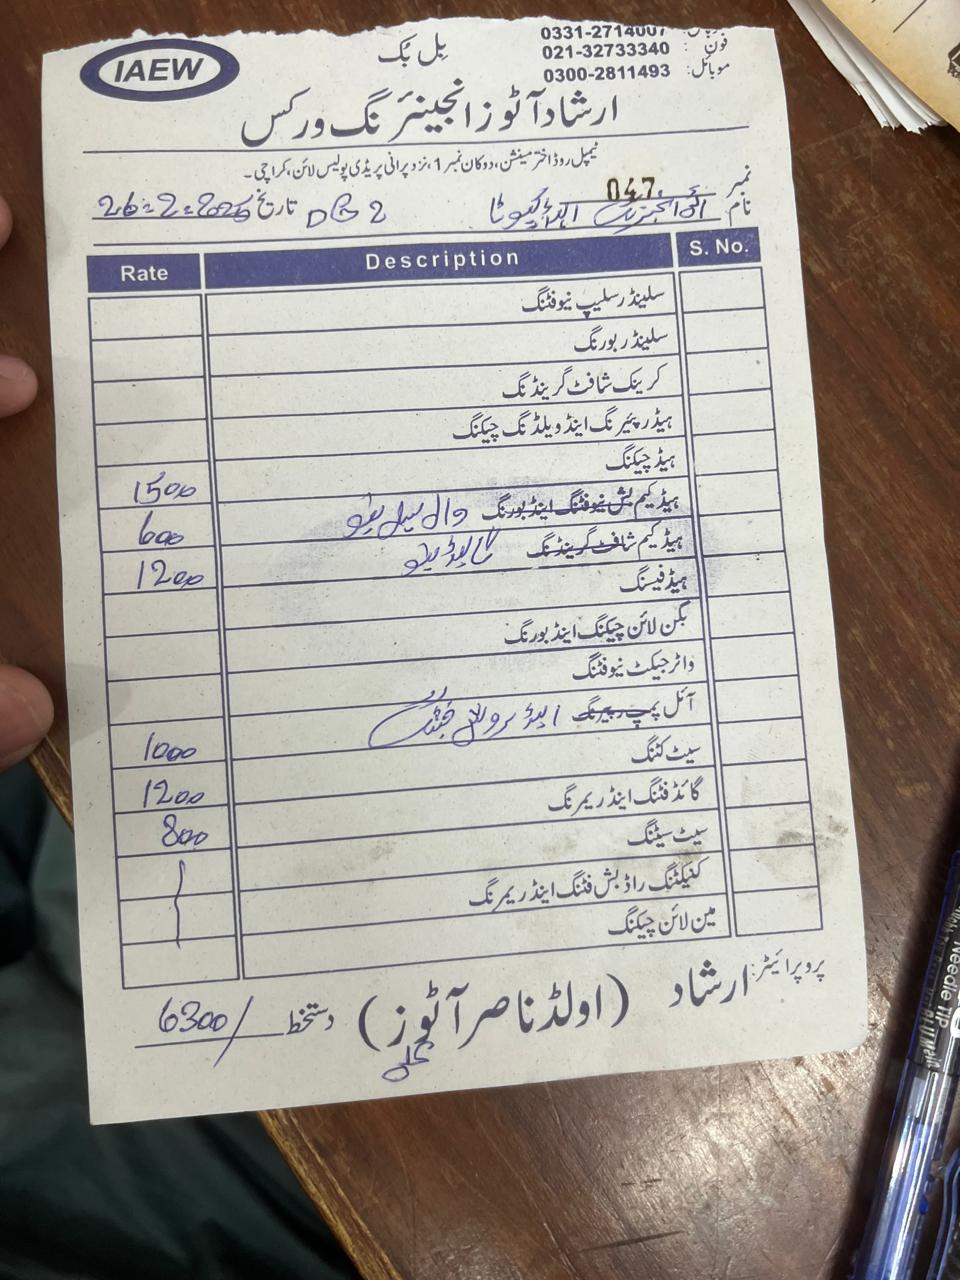 IAEW
بِل بُک
0331-2714007
فون : 021-32733340
موبائل: 0300-2811493
ارشاد آٹوز انجینئرنگ ورکس
ٹیمپل روڈ اختر مینشن، دوکان نمبر 1، نزد پرانی پریڈی پولیس لائن، کراچی۔
نمبر 047
نام تاریخ 26-2-2026
S. No. Description Rate
سلینڈر سلیپ نیو فٹنگ
سلینڈر بورنگ
کرینک شافٹ گرینڈنگ
ہیڈ رپئرنگ اینڈ ویلڈنگ چیکنگ
ہیڈ چیکنگ
ہیڈ کیم بش نیو فٹنگ اینڈ بورنگ وال سیل نیو 1500
ہیڈ کیم شافٹ گرینڈنگ 600
ہیڈ فیسنگ 1200
بگن لائن چیکنگ اینڈ بورنگ
واٹر جیکٹ نیو فٹنگ
آئل پمپ رپیرنگ
سیٹ کٹنگ 1000
گائڈ فٹنگ اینڈ ریمرنگ 1200
سیٹ سیٹنگ 800
کنیکٹنگ راڈ بش فٹنگ اینڈ ریمرنگ
مین لائن چیکنگ
پروپرائیٹر: ارشاد (اولڈ ناصر آٹوز) دستخط 6300/